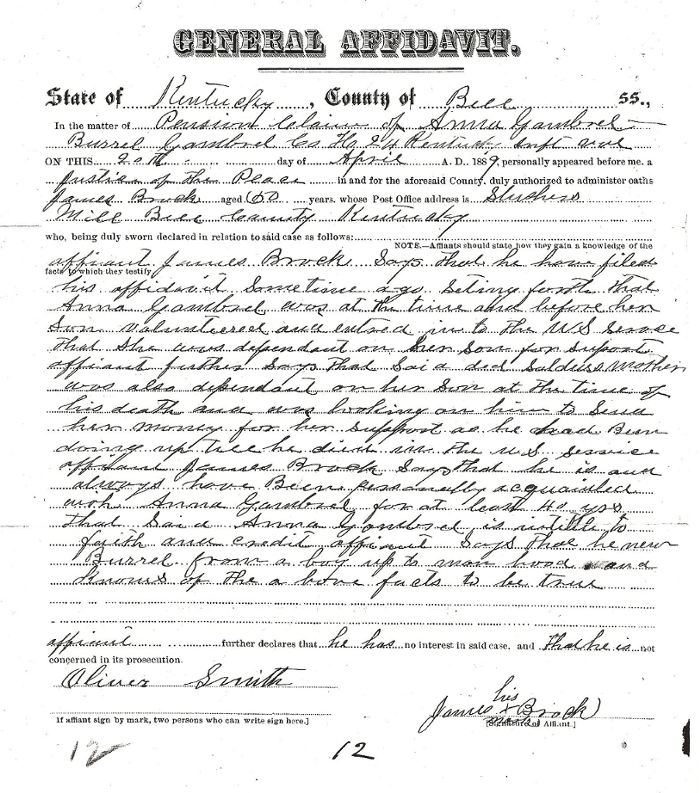 GENERAL AFFIDAVIT.
State of Kentucky, County of Bell SS.,
In the matter of Pension Claim of Anna Gambrel
Burrel Gambrel Co H 24 Kentucky Inft vol
ON THIS 20th day of April A. D. 1889 personally appeared before me. a
Justice of the Peace in and for the aforesaid County, duly authorized to administer oaths
James Brock aged 60 years, whose Post Office address is
Mill Bell County Kentucky
who, being duly sworn declared in relation to said case as follows:
NOTE.—Affiants should state how they gain a knowledge of the
facts to which they testify
affiant James Brock Says that he have filed
his affidavit Sometime ago Seting forth that
Anna Gambrel was at the time and before her
Son Volunteered and entred in to the US Service
that She was dependant on her Son for Suport
affiant further Says that Said ded Soldiers Mother
was also dependant on her Son at the time of
his death and was looking on him to Send
her money for her Support as he had Bin
doing up till he died in the U.S. Service
affiant James Brock Says that he is and
always have Been personally acquainted
with Anna Gambrel for at least 40 yrs
that Said Anna Gambrel is intitle to
faith and credit affiant Says that he new
Burrel from a boy up to man hood and
Knows of the a bove facts to be true
affiant further declares that he has no interest in said case, and that he is not
concerned in its prosecution.
Oliver Smith
If affiant sign by mark, two persons who can write sign here.]
his
James x Brock
mark
[Signature of Affiant.]
12
12